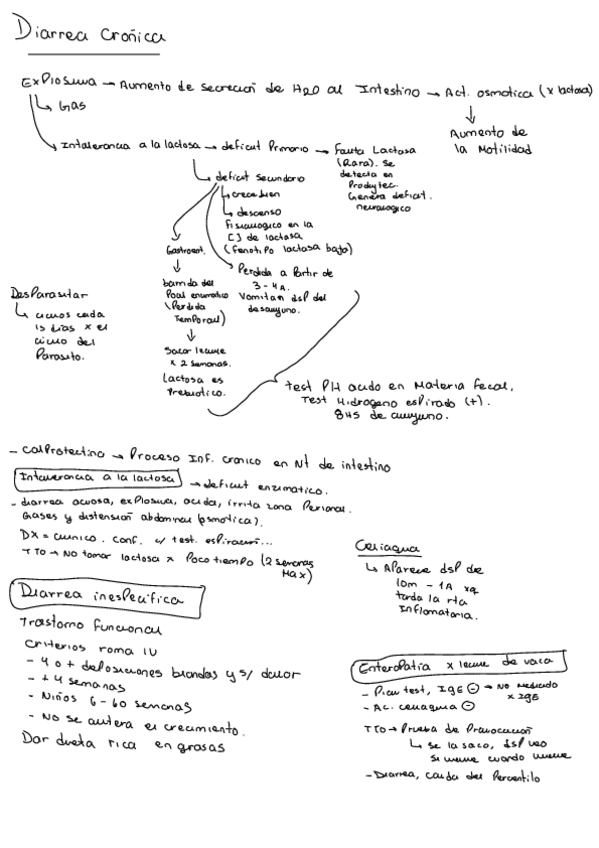 Diarrea Cronica
Explosiva → Aumento de secrecion de H2O al Intestino → Act. osmotica (x lactosa)
↳ Gas
Aumento de
la Motilidad
Intolerancia a la lactosa → deficit Primario → Falta Lactosa
(Rara). Se
detecta en
Genera deficit.
neurologico
↳ deficit secundario
↳ crece bien
↳ descenso
Fisiologico en la
[ ] de lactosa
(fenotipo lactosa bajo)
Gastroent.
↓
barrida del
Pool enzimatico
(Perdida
Temporal)
↓
Sacar leche
x 2 semanas.
Lactosa es
Prebiotico.
Perdida a Partir de
3 - 4 A.
Vomitan dsp del
desayuno.
Desparasitar
↳ ciclos cada
15 dias x el
ciclo del
Parasito.
Test PH acido en Materia fecal,
Test Hidrogeno espirado (+).
8HS de ayuno.
- Calprotectina → Proceso Inf. cronico en NT de intestino
Intolerancia a la lactosa → deficit enzimatico.
- diarrea acuosa, explosiva, acida, irrita zona Perianal.
Gases y distension abdominal (osmotica).
DX = clinico. conf. c/ test. espiracion...
TTO → No tomar lactosa x Poco tiempo (2 semanas
Max)
Celiaquia
↳ Aparece dsp de
10m - 1A xq
tarda la rta
Inflamatoria.
Diarrea inespecifica
Trastorno Funcional
Criterios roma IV
- 4 o + deposiciones blandas y s/ dolor
- + 4 semanas
- Niños 6 - 60 semanas
- No se altera el crecimiento.
Dar dieta rica en grasas
Enteropatia x leche de vaca
- Prick test, IgE ⊖ → No mediado
x IgE
- Ac. celiaquia ⊖
TTO → Prueba de Provocacion
↳ se la saco, dsp veo
si vuelve cuando vuelve
- Diarrea, caida del Percentilo